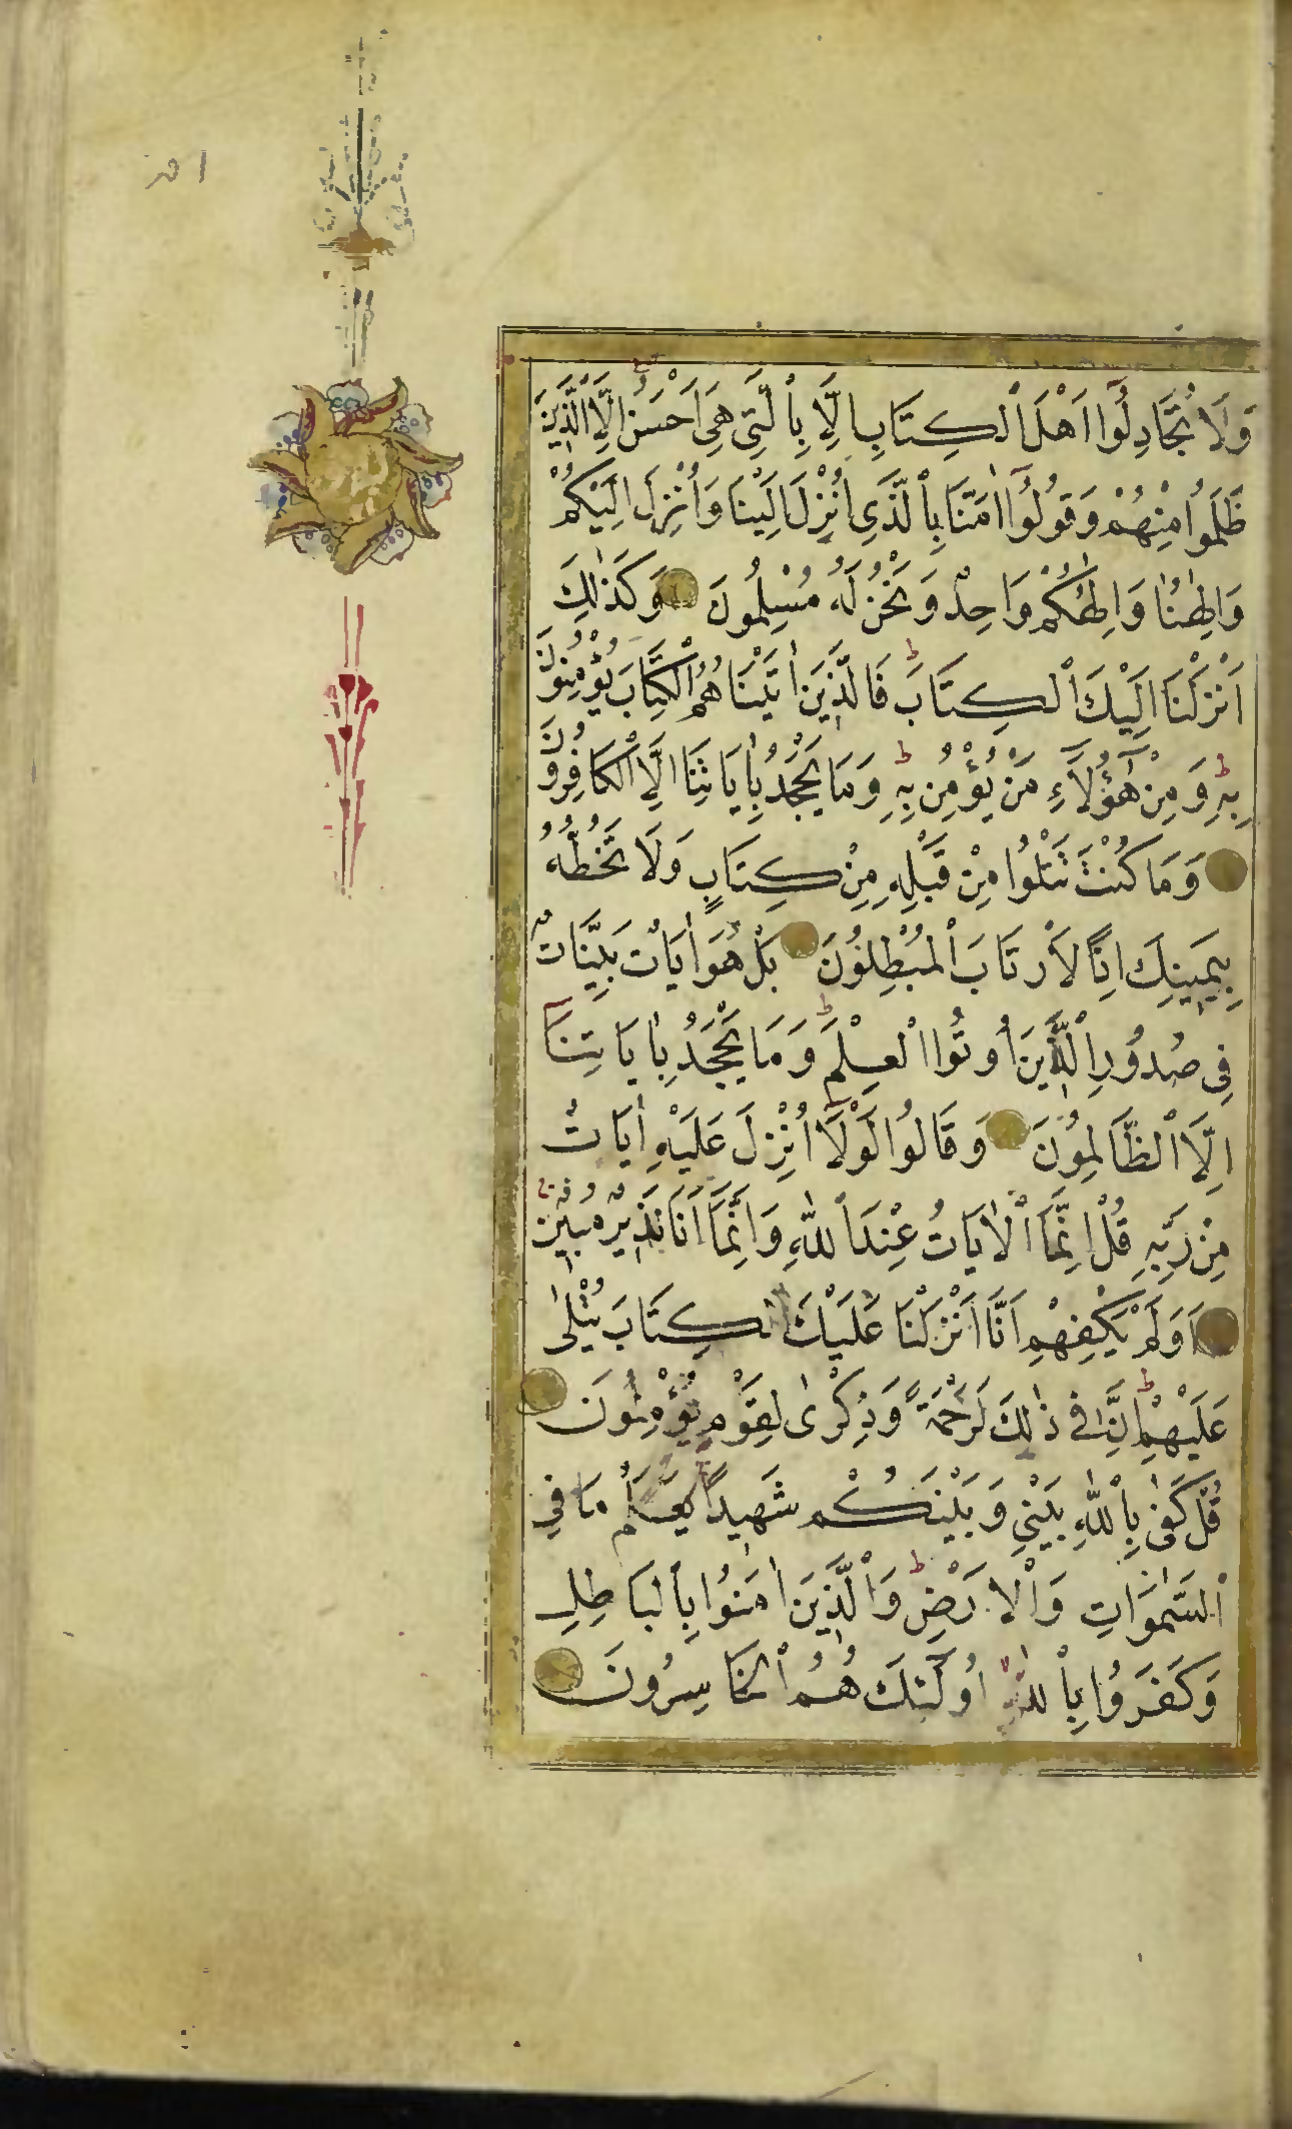 وَلَا تُجَادِلُوٓا اَهْلَ الْكِتَابِ اِلَّا بِالَّتِى هِىَ اَحْسَنُ اِلَّا الَّذِينَ
ظَلَمُوا مِنْهُمْ وَقُولُوٓا اٰمَنَّا بِالَّذِى اُنْزِلَ اِلَيْنَا وَاُنْزِلَ اِلَيْكُمْ
وَاِلٰهُنَا وَاِلٰهُكُمْ وَاحِدٌ وَنَحْنُ لَهُ مُسْلِمُونَ وَكَذٰلِكَ
اَنْزَلْنَا اِلَيْكَ الْكِتَابَ فَالَّذِينَ اٰتَيْنَاهُمُ الْكِتَابَ يُؤْمِنُونَ
بِهِ وَمِنْ هٰٓؤُلَآءِ مَنْ يُؤْمِنُ بِهِ وَمَا يَجْحَدُ بِاٰيَاتِنَا اِلَّا الْكَافِرُونَ
وَمَا كُنْتَ تَتْلُوا مِنْ قَبْلِهِ مِنْ كِتَابٍ وَلَا تَخُطُّهُ
بِيَمِينِكَ اِذًا لَارْتَابَ الْمُبْطِلُونَ بَلْ هُوَ اٰيَاتٌ بَيِّنَاتٌ
فِى صُدُورِ الَّذِينَ اُوتُوا الْعِلْمَ وَمَا يَجْحَدُ بِاٰيَاتِنَآ
اِلَّا الظَّالِمُونَ وَقَالُوا لَوْلَٓا اُنْزِلَ عَلَيْهِ اٰيَاتٌ
مِنْ رَبِّهِ قُلْ اِنَّمَا الْاٰيَاتُ عِنْدَ اللّٰهِ وَاِنَّمَٓا اَنَا نَذِيرٌ مُبِينٌ
اَوَلَمْ يَكْفِهِمْ اَنَّا اَنْزَلْنَا عَلَيْكَ الْكِتَابَ يُتْلٰى
عَلَيْهِمْ اِنَّ فِى ذٰلِكَ لَرَحْمَةً وَذِكْرٰى لِقَوْمٍ يُؤْمِنُونَ
قُلْ كَفٰى بِاللّٰهِ بَيْنِى وَبَيْنَكُمْ شَهِيدًا يَعْلَمُ مَا فِى
السَّمٰوَاتِ وَالْاَرْضِ وَالَّذِينَ اٰمَنُوا بِالْبَاطِلِ
وَكَفَرُوا بِاللّٰهِ اُولٰٓئِكَ هُمُ الْخَاسِرُونَ